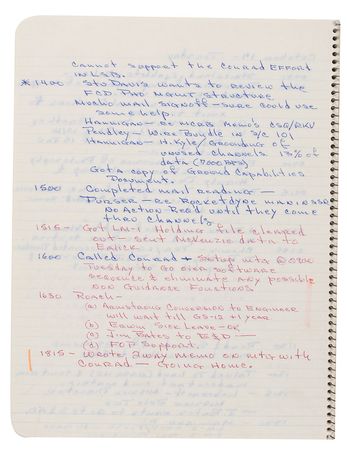 cannot support the Conrad Effort
in LSD.
*1400 Stu Davis wants to review the
FCD Two Mount structure
Mucho mail signoff - sure could use
some help.
Hannigan - re MCCR Memo's CSQ/RKV
Pendley - Wire Bundle in S/C 101
Hannigan - H. Kyle/Grounding of
unused channels 13% of
data (200 BPS)
Got a copy of Ground Capabilities
Document.
1500 Completed mail reading -
Purser - re Rocketdyne
no action Reqd until they come
thru channels.
1515 - Got LM-1 Holding file changed
out - sent McKenzie data to
1600 Called Conrad + Setup mtg @ 0900
Tuesday to go over software
sequence & eliminate any possible
non Guidance Functions.
1630 Roach -
(a) Armstrong Conversion to Engineer
will wait till GS-12 +1 year
(b) Edwin Sick Leave - OK
(c) Jim Bates to E&D -
(d) FOP Support.
1815 - Wrote 2way memo on mtg with
Conrad - Going Home.